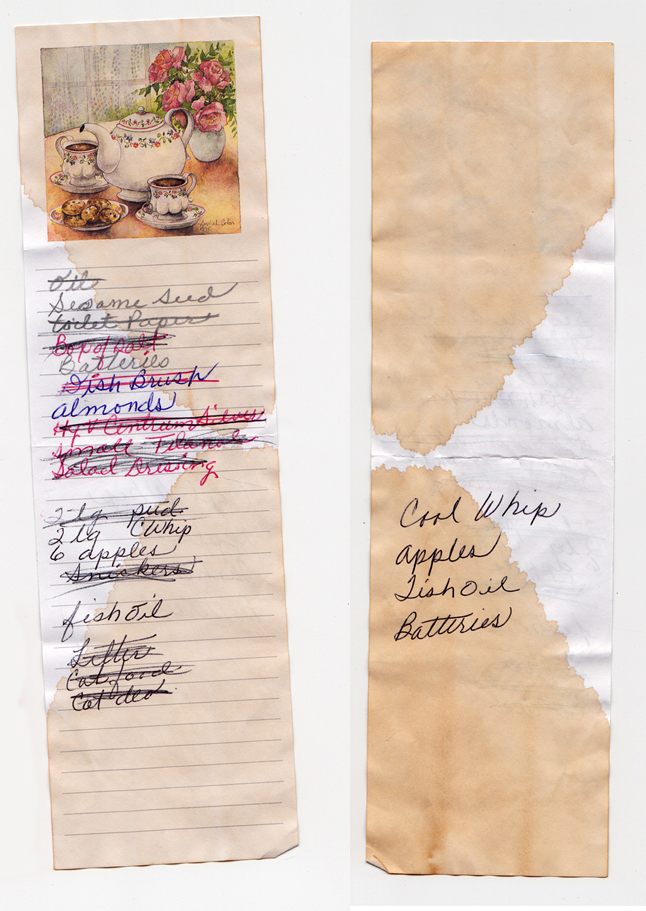 Oil
Sesame Seed
toilet Paper
Batteries
Dish Brush
almonds
Centrum Silver
Small
Salad Dressing
2 lg pud
2 lg CWhip
6 apples
Snickers
fish oil
Litter
Cat food
Cat deo
Cool Whip
apples
Fish Oil
Batteries